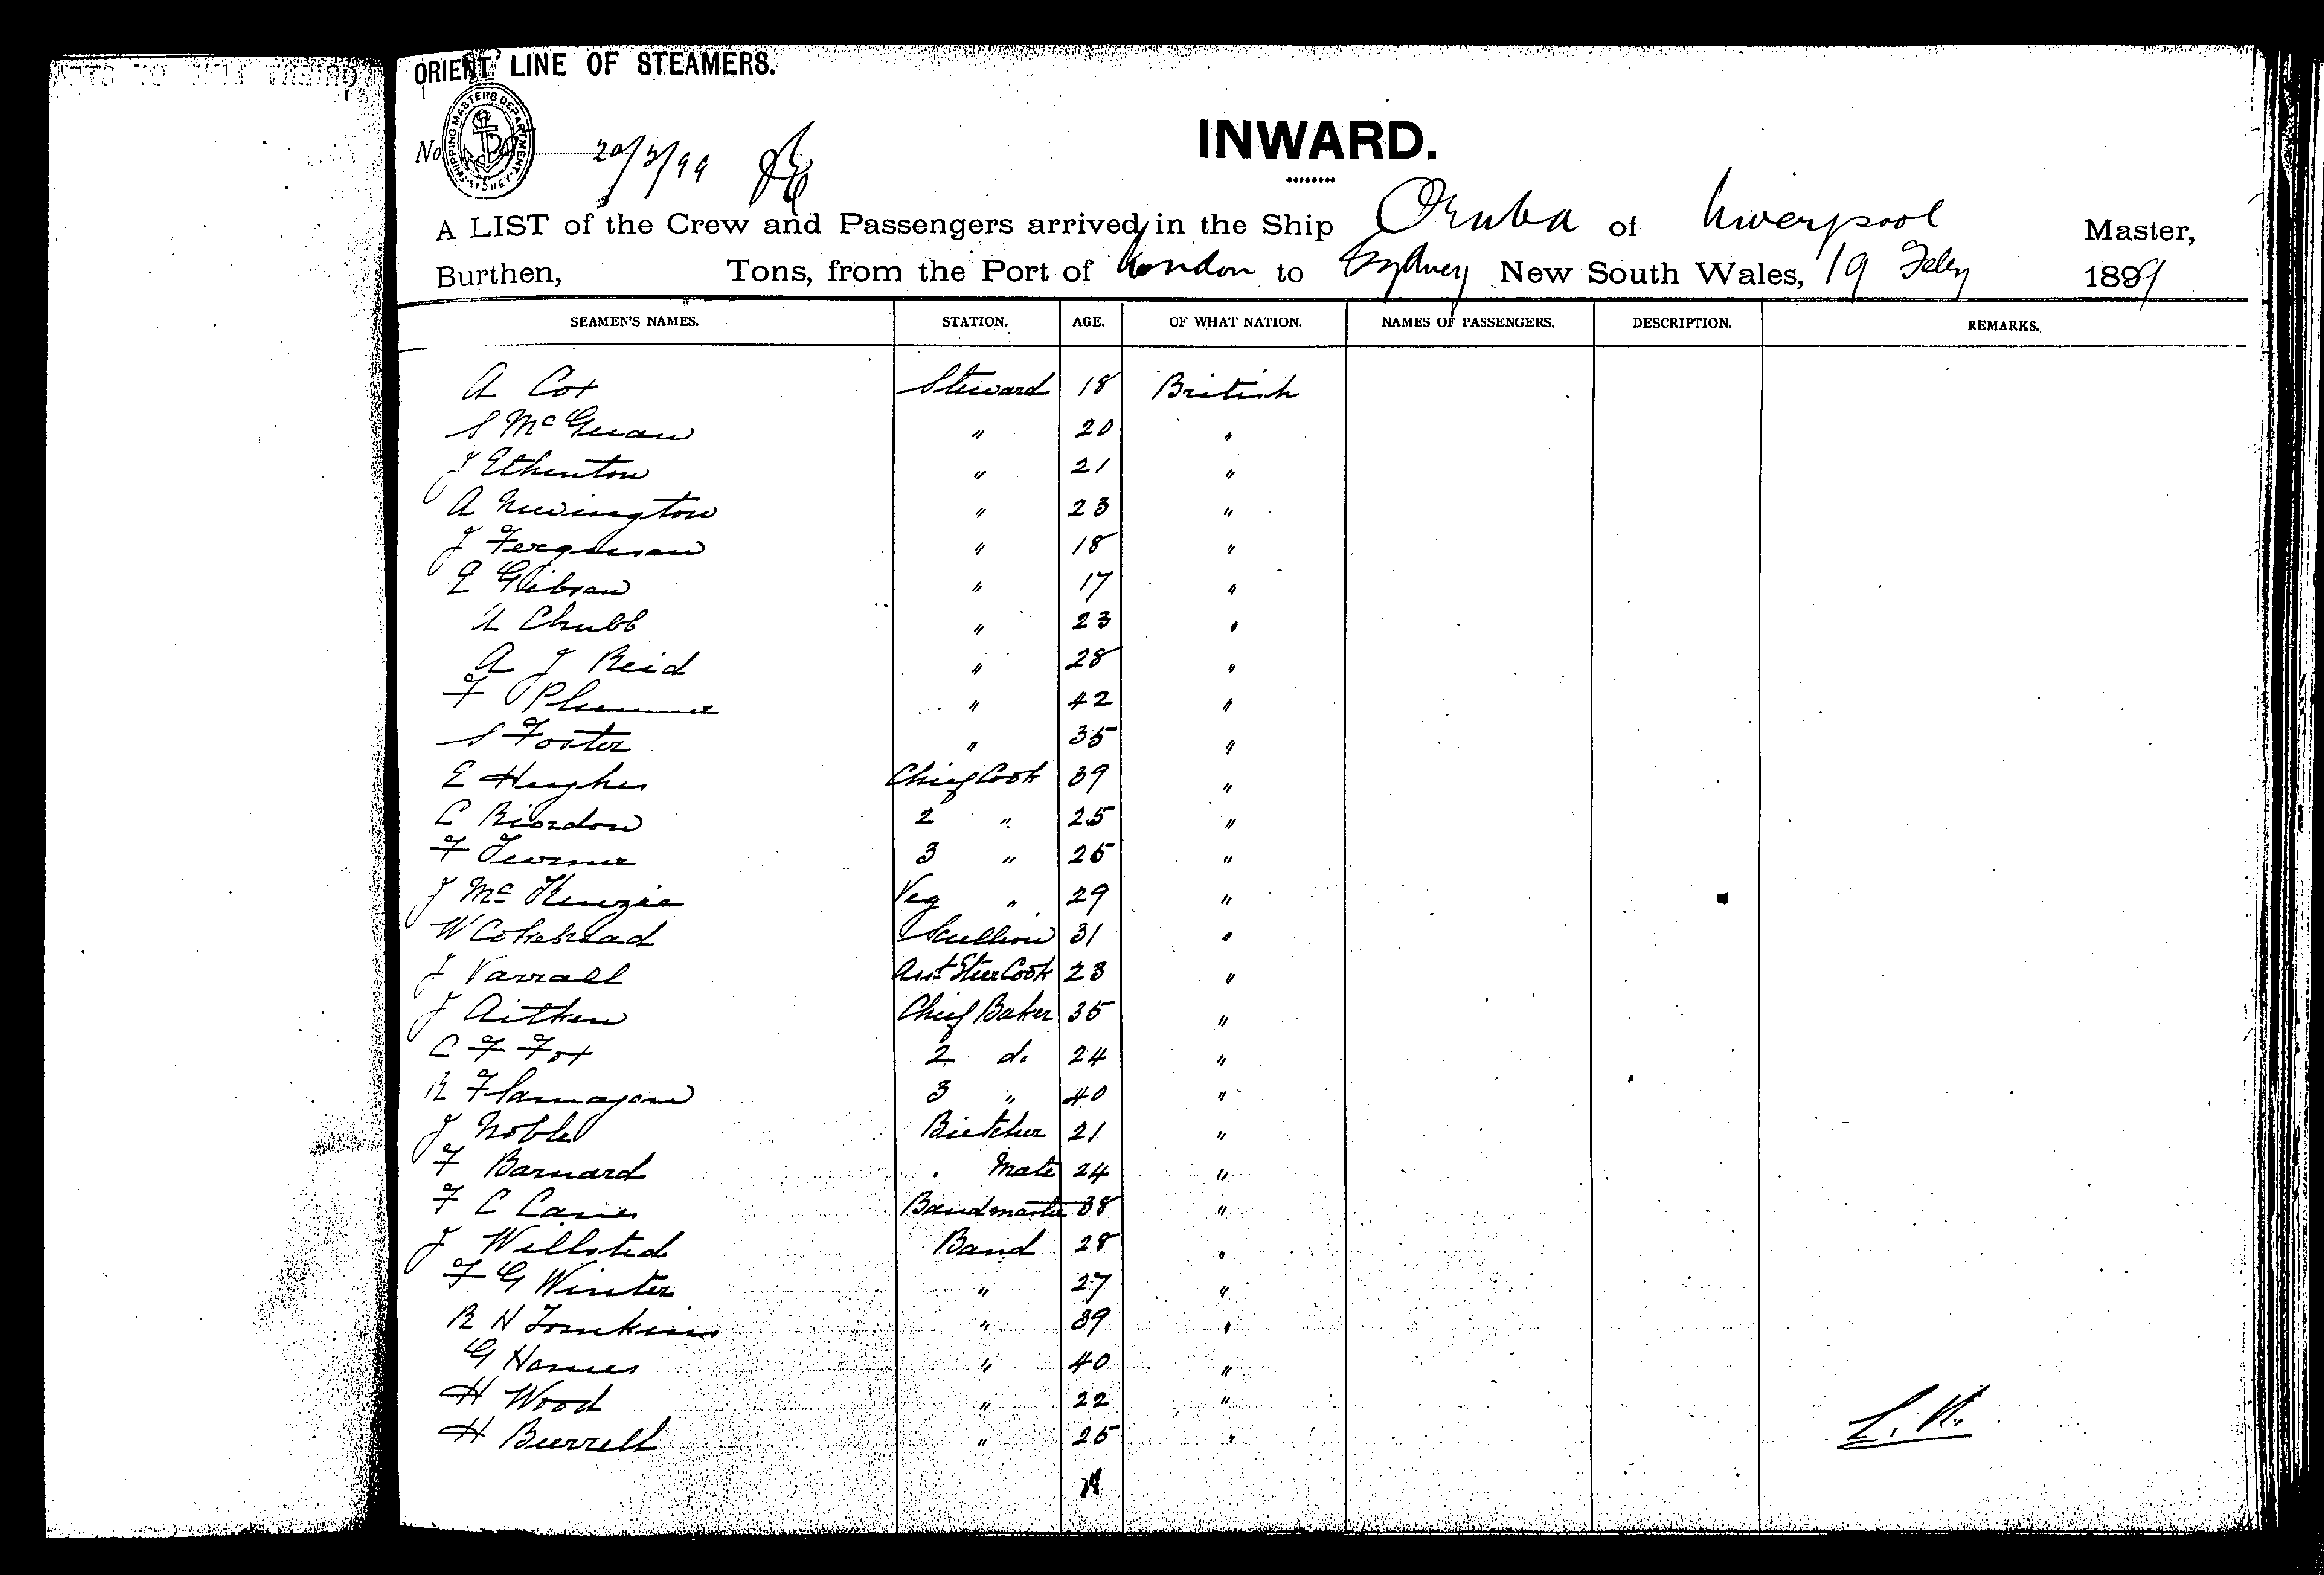 ORIENT LINE OF STEAMERS.
SHIPPING MASTER'S DEPARTMENT SYDNEY
No. 20/2/99
INWARD.
A LIST of the Crew and Passengers arrived in the Ship Oruba of Liverpool Master,
Burthen, Tons, from the Port of London to Sydney New South Wales, 19 Feby 1899
SEAMEN'S NAMES. STATION. AGE. OF WHAT NATION. NAMES OF PASSENGERS. DESCRIPTION. REMARKS.
A Cox Steward 18 British
S McGuan " 20 "
J Etherton " 21 "
A Newington " 23 "
J Ferguson " 18 "
E Gibson " 17 "
A Chubb " 23 "
A J Reid " 28 "
F Plummer " 42 "
S Foster " 35 "
E Hughes Chief Cook 39 "
C Riordon 2 " 25 "
F Turner 3 " 25 "
J McKenzie Veg " 29 "
W Cokehead Scullion 31 "
J Varrall Asst Stew Cook 23 "
J Aitken Chief Baker 35 "
C F Fox 2 do 24 "
R Flanagan 3 " 40 "
J Noble Butcher 21 "
F Barnard " Mate 24 "
F C Bandmaster 38 "
J Willsted Band 28 "
F G Winter " 27 "
R H Tomkins " 39 "
G " 40 "
H Wood " 22 "
H Burrell " 25 "
L.K.